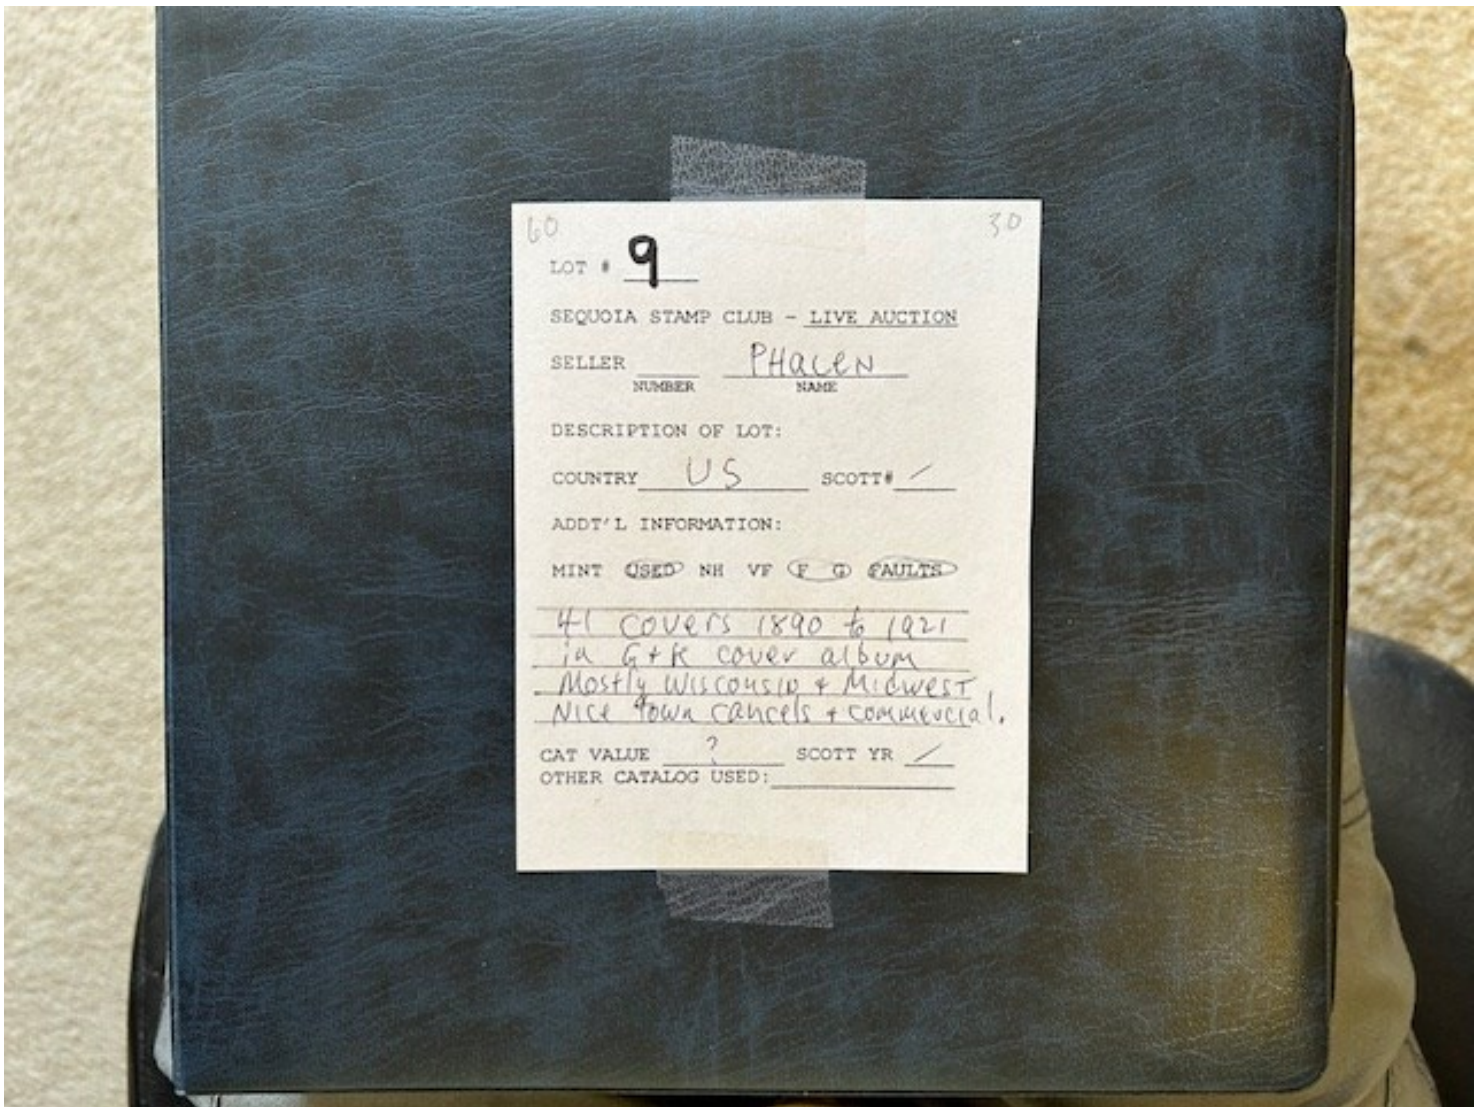 60 30
LOT # 9
SEQUOIA STAMP CLUB - LIVE AUCTION
SELLER PHALEN
NUMBER NAME
DESCRIPTION OF LOT:
COUNTRY US SCOTT# /
ADDT'L INFORMATION:
MINT USED NH VF F G FAULTS
41 covers 1890 to 1921
in G+K cover album
Mostly Wisconsin + Midwest
Nice town cancels + commercial.
CAT VALUE ? SCOTT YR /
OTHER CATALOG USED: